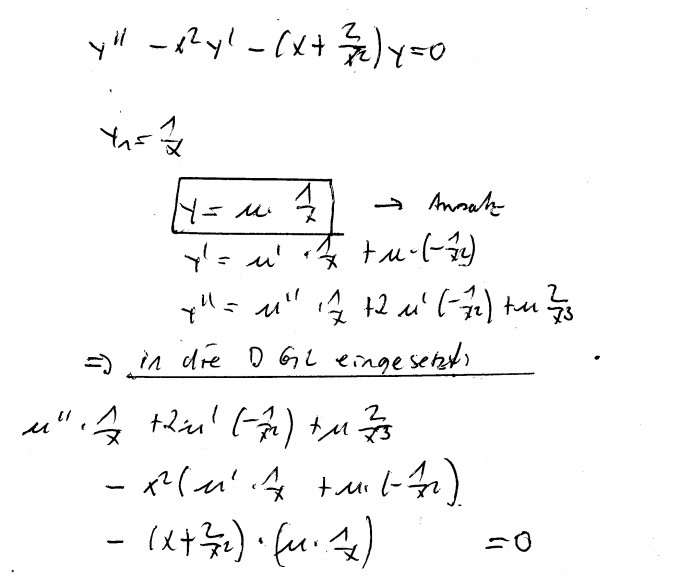 y'' - x² y' - (x + 2/x²) y = 0
y₁ = 1/x
y = u · 1/x → Ansatz
y' = u' · 1/x + u · (-1/x²)
y'' = u'' · 1/x + 2 u' (-1/x²) + u 2/x³
⇒ in die DGL eingesetzt:
u'' · 1/x + 2u' (-1/x²) + u 2/x³
- x² (u' · 1/x + u · (-1/x²)
- (x + 2/x²) · (u · 1/x) = 0